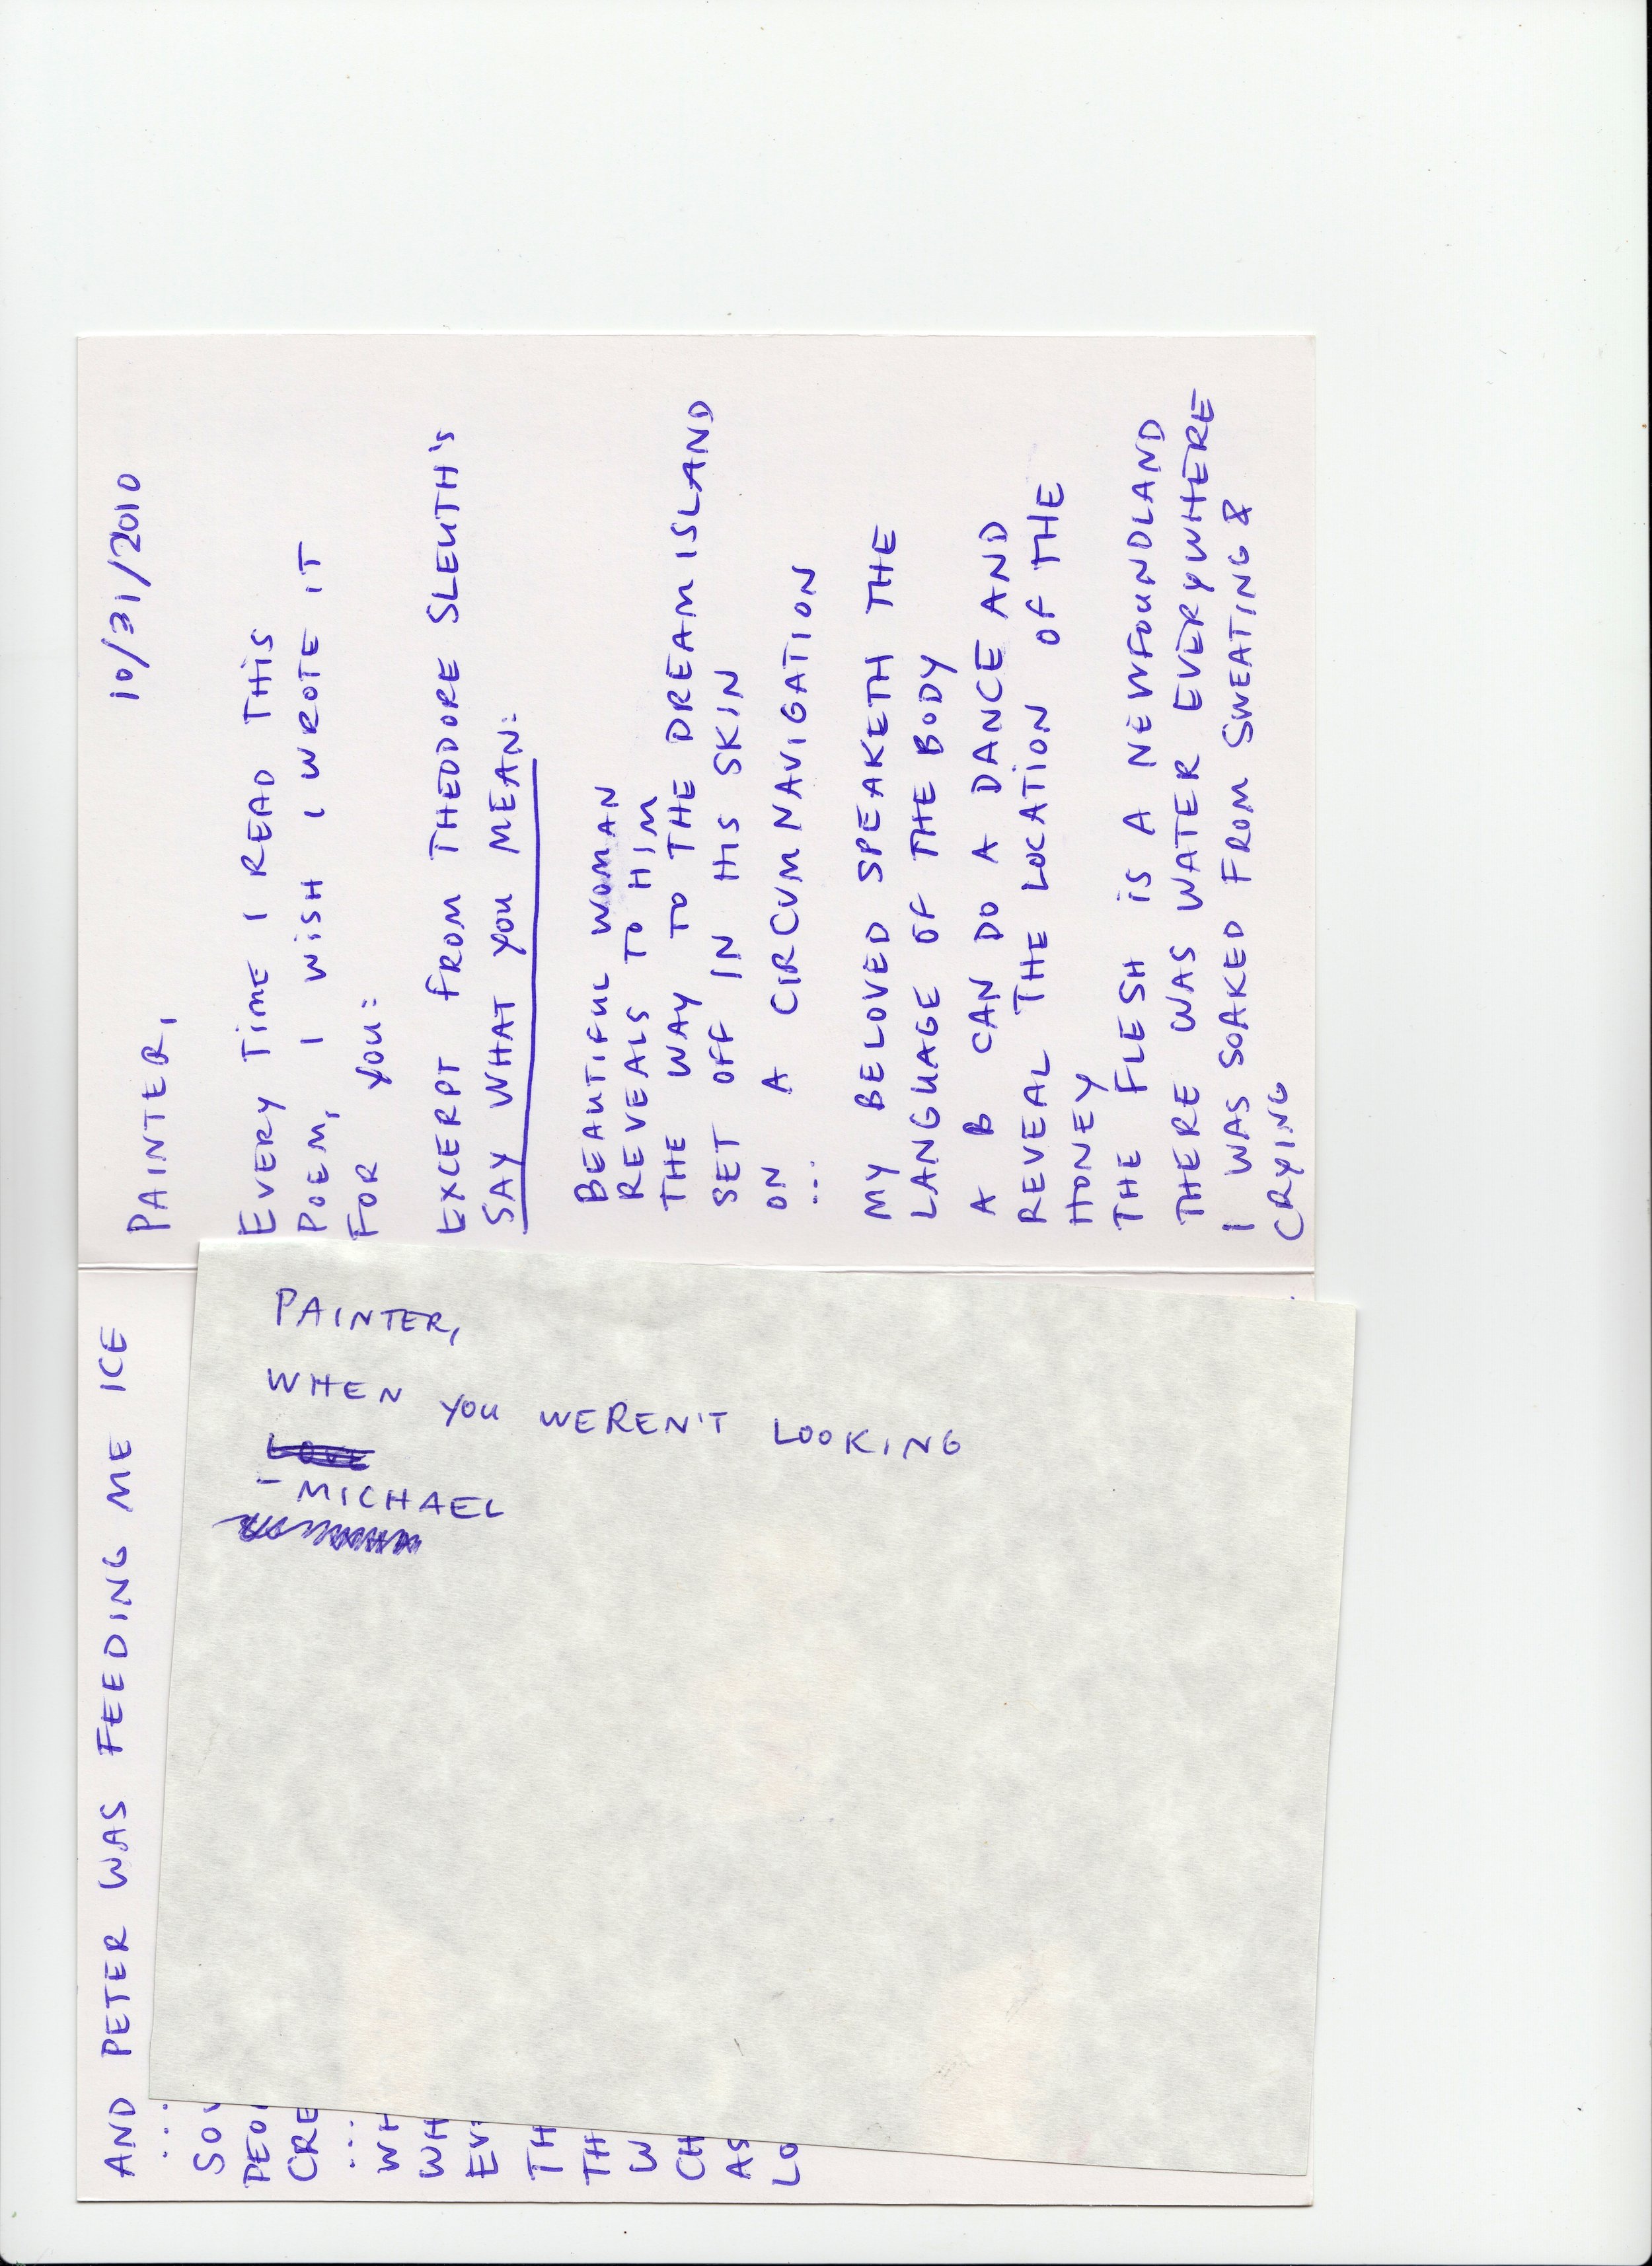 10/31/2010
PAINTER,
EVERY TIME I READ THIS
POEM, I WISH I WROTE IT
FOR YOU:
EXCERPT FROM THEODORE SLEUTH'S
SAY WHAT YOU MEAN:
BEAUTIFUL WOMAN
REVEALS TO HIM
THE WAY TO THE DREAM ISLAND
SET OFF IN HIS SKIN
ON A CIRCUMNAVIGATION
...
MY BELOVED SPEAKETH THE
LANGUAGE OF THE BODY
A B CAN DO A DANCE AND
REVEAL THE LOCATION OF THE
HONEY
THE FLESH IS A NEWFOUNDLAND
THERE WAS WATER EVERYWHERE
I WAS SOAKED FROM SWEATING &
CRYING
AND PETER WAS FEEDING ME ICE
PAINTER,
WHEN YOU WEREN'T LOOKING
-MICHAEL